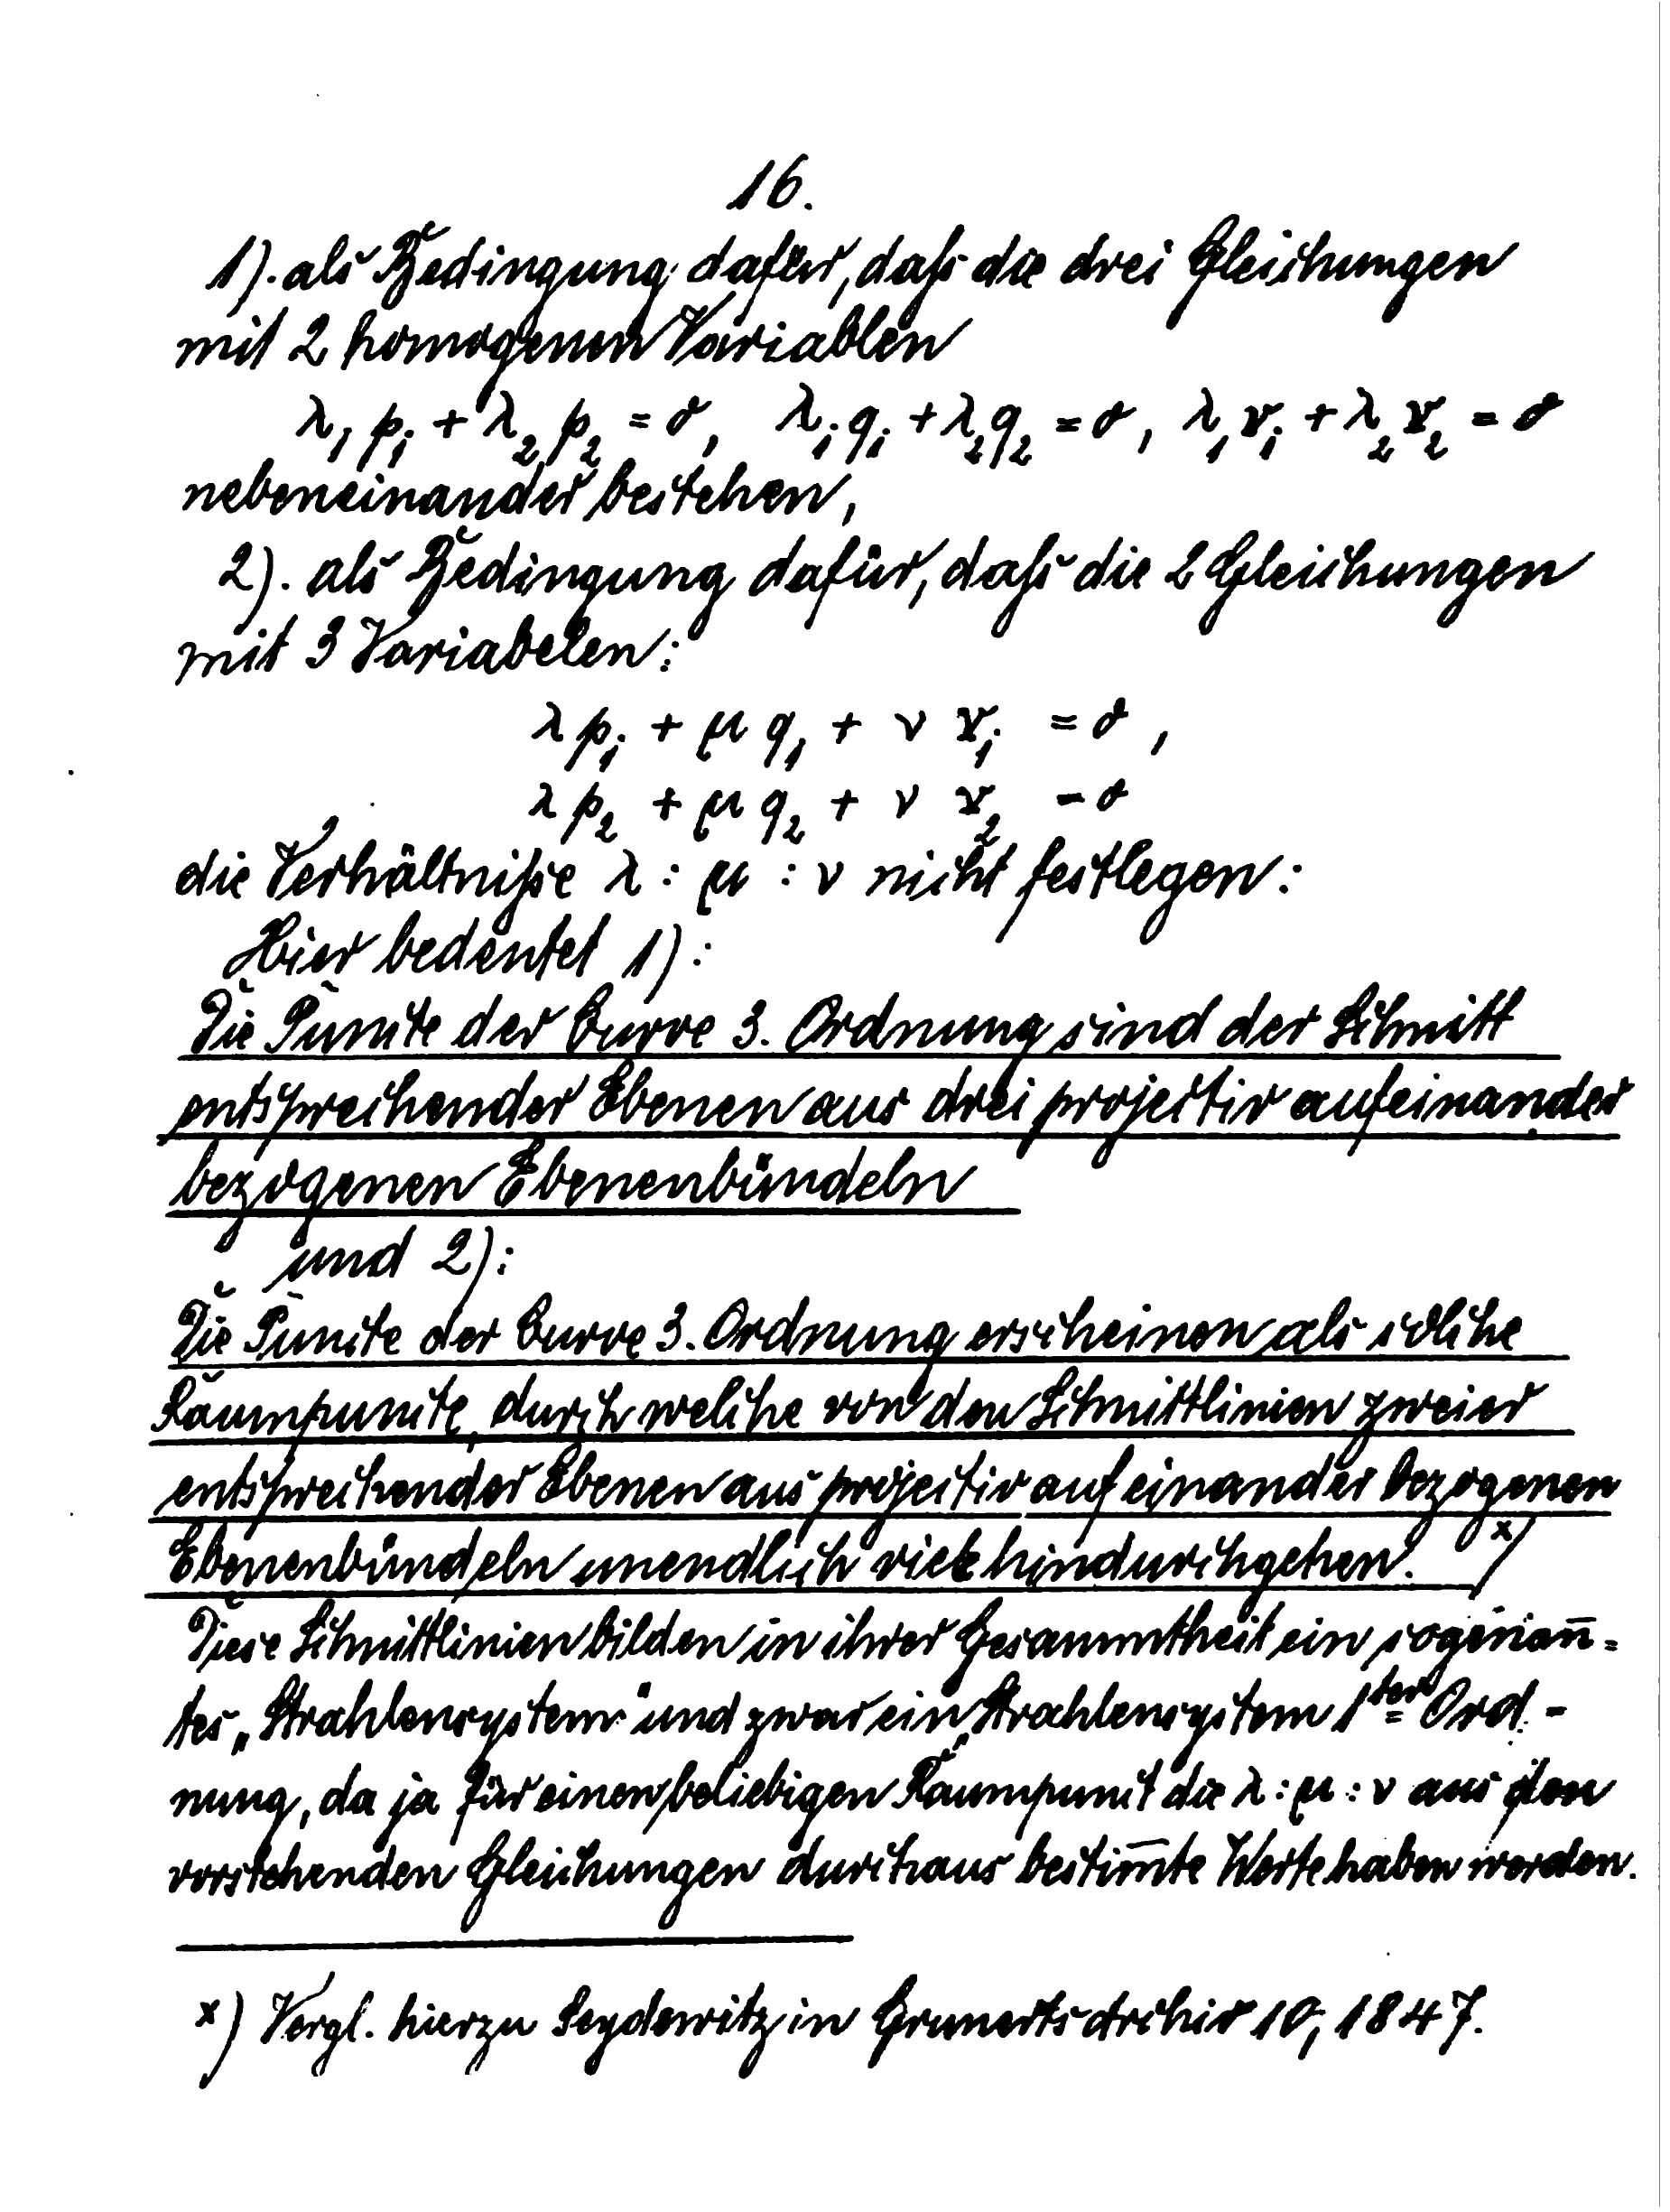 16.
1). als Bedingung dafür, daß die drei Gleichungen
mit 2 homogenen Variablen
λ₁ p₁ + λ₂ p₂ = 0, λ₁ q₁ + λ₂ q₂ = 0, λ₁ r₁ + λ₂ r₂ = 0
nebeneinander bestehen,
2). als Bedingung dafür, daß die 2 Gleichungen
mit 3 Variabelen:
λ p₁ + μ q₁ + ν r₁ = 0,
λ p₂ + μ q₂ + ν r₂ = 0
die Verhältniße λ : μ : ν nicht festlegen:
Hier bedeutet 1):
Die Puncte der Curve 3. Ordnung sind der Schnitt
entsprechender Ebenen aus drei projectiv aufeinander
bezogenen Ebenenbündeln
und 2):
Die Puncte der Curve 3. Ordnung erscheinen als solche
Raumpuncte, durch welche von den Schnittlinien zweier
entsprechender Ebenen aus projectiv aufeinander bezogenen
Ebenenbündeln unendlich viele hindurchgehen. x)
Diese Schnittlinien bilden in ihrer Gesammtheit ein sogenan̄-
tes „Strahlensystem" und zwar ein „Strahlensystem 1ter Ord-
nung", da ja für einen beliebigen Raumpunct die λ : μ : ν aus den
vorstehenden Gleichungen durchaus bestim̄te Werte haben werden.
x) Vergl. hierzu Seydewitz in Grunerts Archiv 10, 1847.